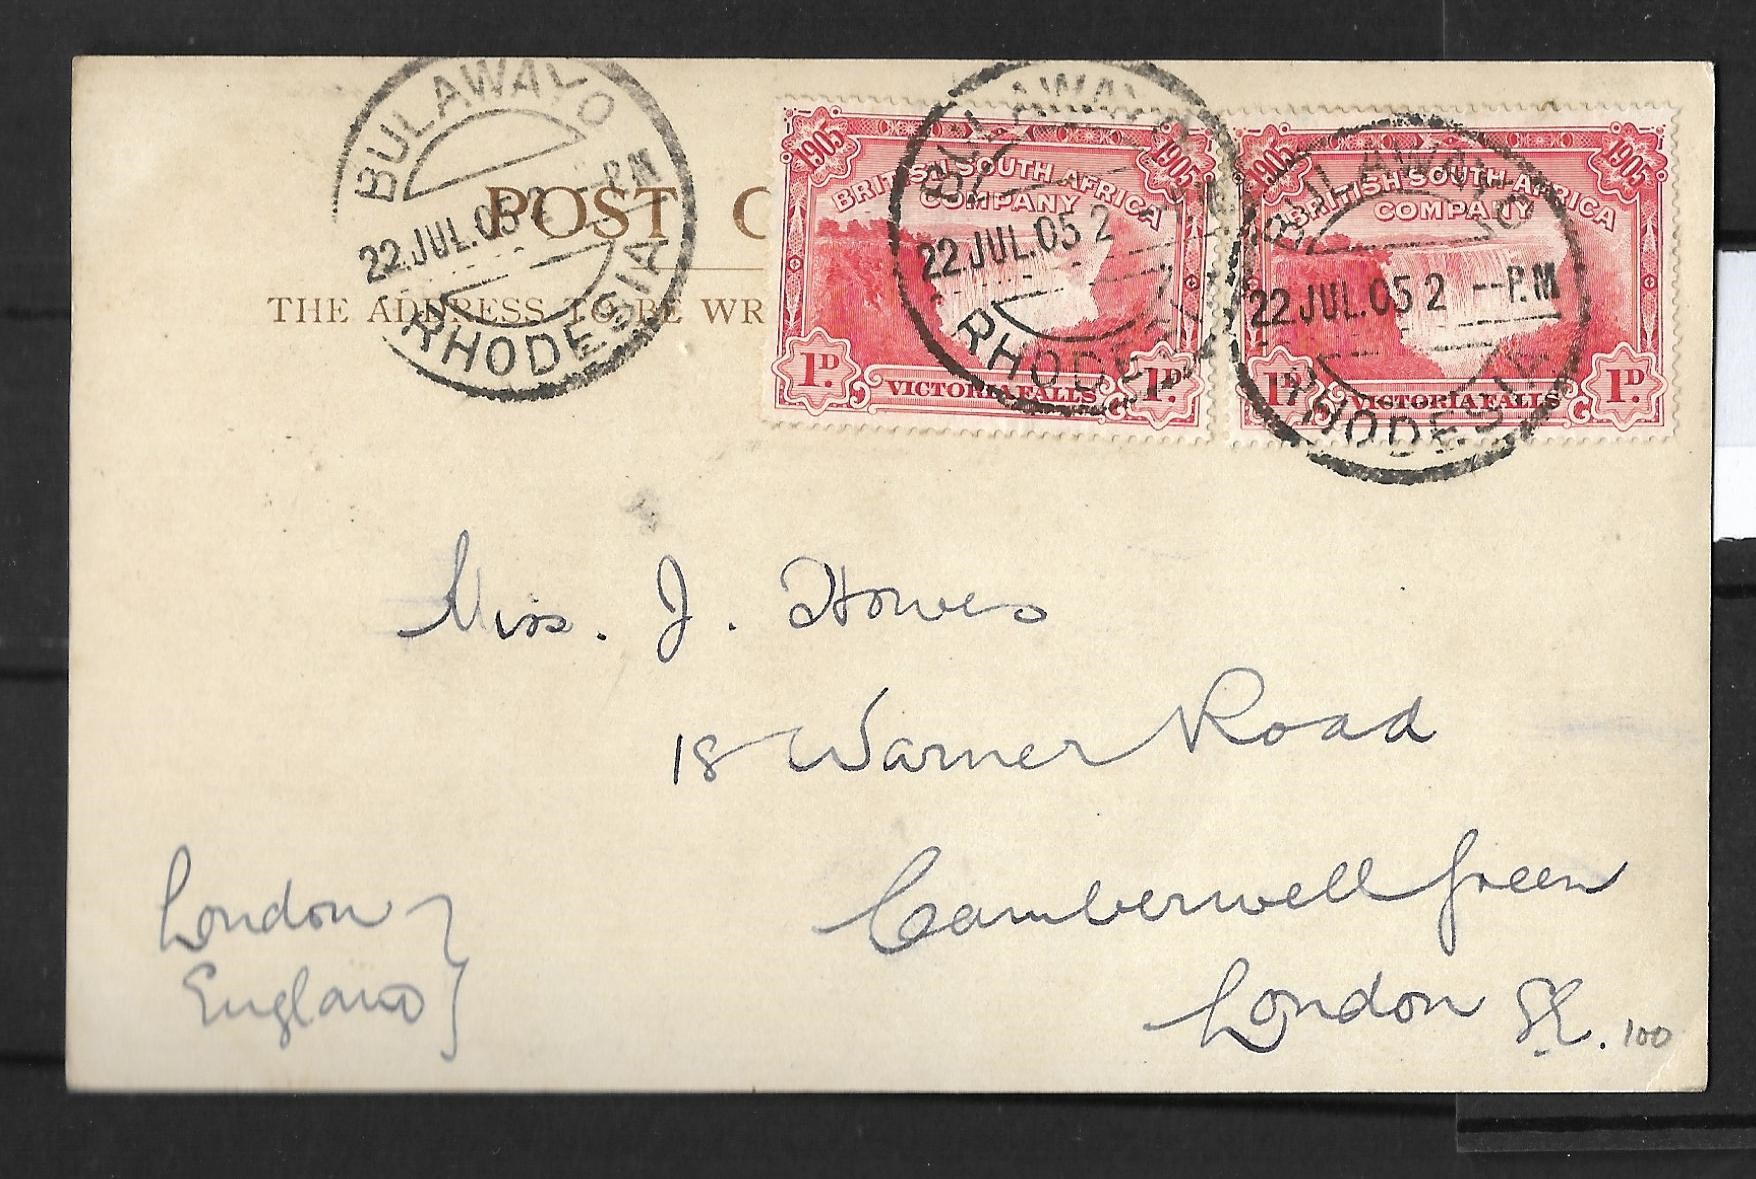 BULAWAYO
22 JUL.05 2 --P.M
RHODESIA
POST C
THE ADDRESS TO BE WR
1905 1905
BRITISH SOUTH AFRICA
COMPANY
1D. VICTORIA FALLS 1D.
BULAWAYO
22 JUL.05 2
RHODESIA
1905 1905
BRITISH SOUTH AFRICA
COMPANY
1D. VICTORIA FALLS 1D.
BULAWAYO
22 JUL.05 2 --P.M
RHODESIA
Miss. J. Howes
18 Warner Road
Camberwell Green
London S.E.
London
England
100